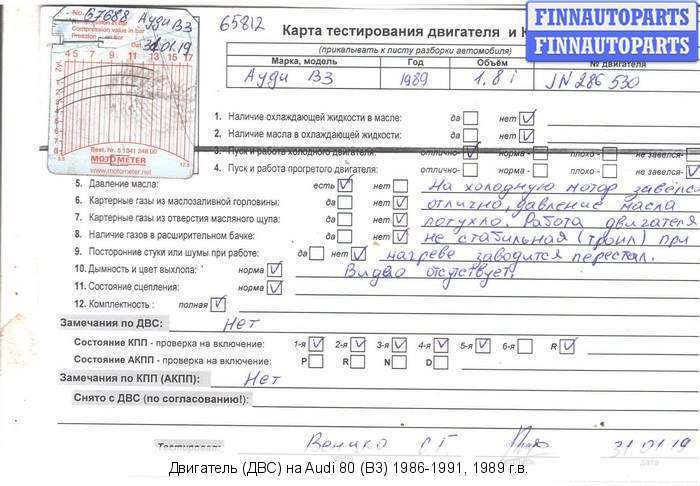 No. 67688 Ауди В3
Compression value in bar
31.01.19
4 5 7 9 11 13 15 17
Best. Nr. 5 1341 248 00
MOTOMETER
www.motometer.net
65812
FINNAUTOPARTS
FINNAUTOPARTS
Карта тестирования двигателя и К
(прикалывать к листу разборки автомобиля)
Марка, модель Год Объём № двигателя
Ауди В3 1989 1.8 i JN 286 530
1. Наличие охлаждающей жидкости в масле: да нет
2. Наличие масла в охлаждающей жидкости: да нет
3. Пуск и работа холодного двигателя: отлично- норма- плохо- не завелся-
4. Пуск и работа прогретого двигателя: отлично- норма- плохо- не завелся-
5. Давление масла: есть нет На холодную мотор завелся
6. Картерные газы из маслозаливной горловины: да нет отлично, давление масла
7. Картерные газы из отверстия масляного щупа: да нет потухло. Работа двигателя
8. Наличие газов в расширительном бачке: да нет не стабильная (троил) при
9. Посторонние стуки или шумы при работе: да нет нагреве заводится перестал.
10. Дымность и цвет выхлопа: норма Видео отсутствует.
11. Состояние сцепления: норма
12. Комплектность : полная
Замечания по ДВС: Нет
Состояние КПП - проверка на включение: 1-я 2-я 3-я 4-я 5-я 6-я R
Состояние АКПП - проверка на включение: P R N D
Замечания по КПП (АКПП): Нет
Снято с ДВС (по согласованию!):
Тестировал: 31.01.19
Двигатель (ДВС) на Audi 80 (B3) 1986-1991, 1989 г.в.